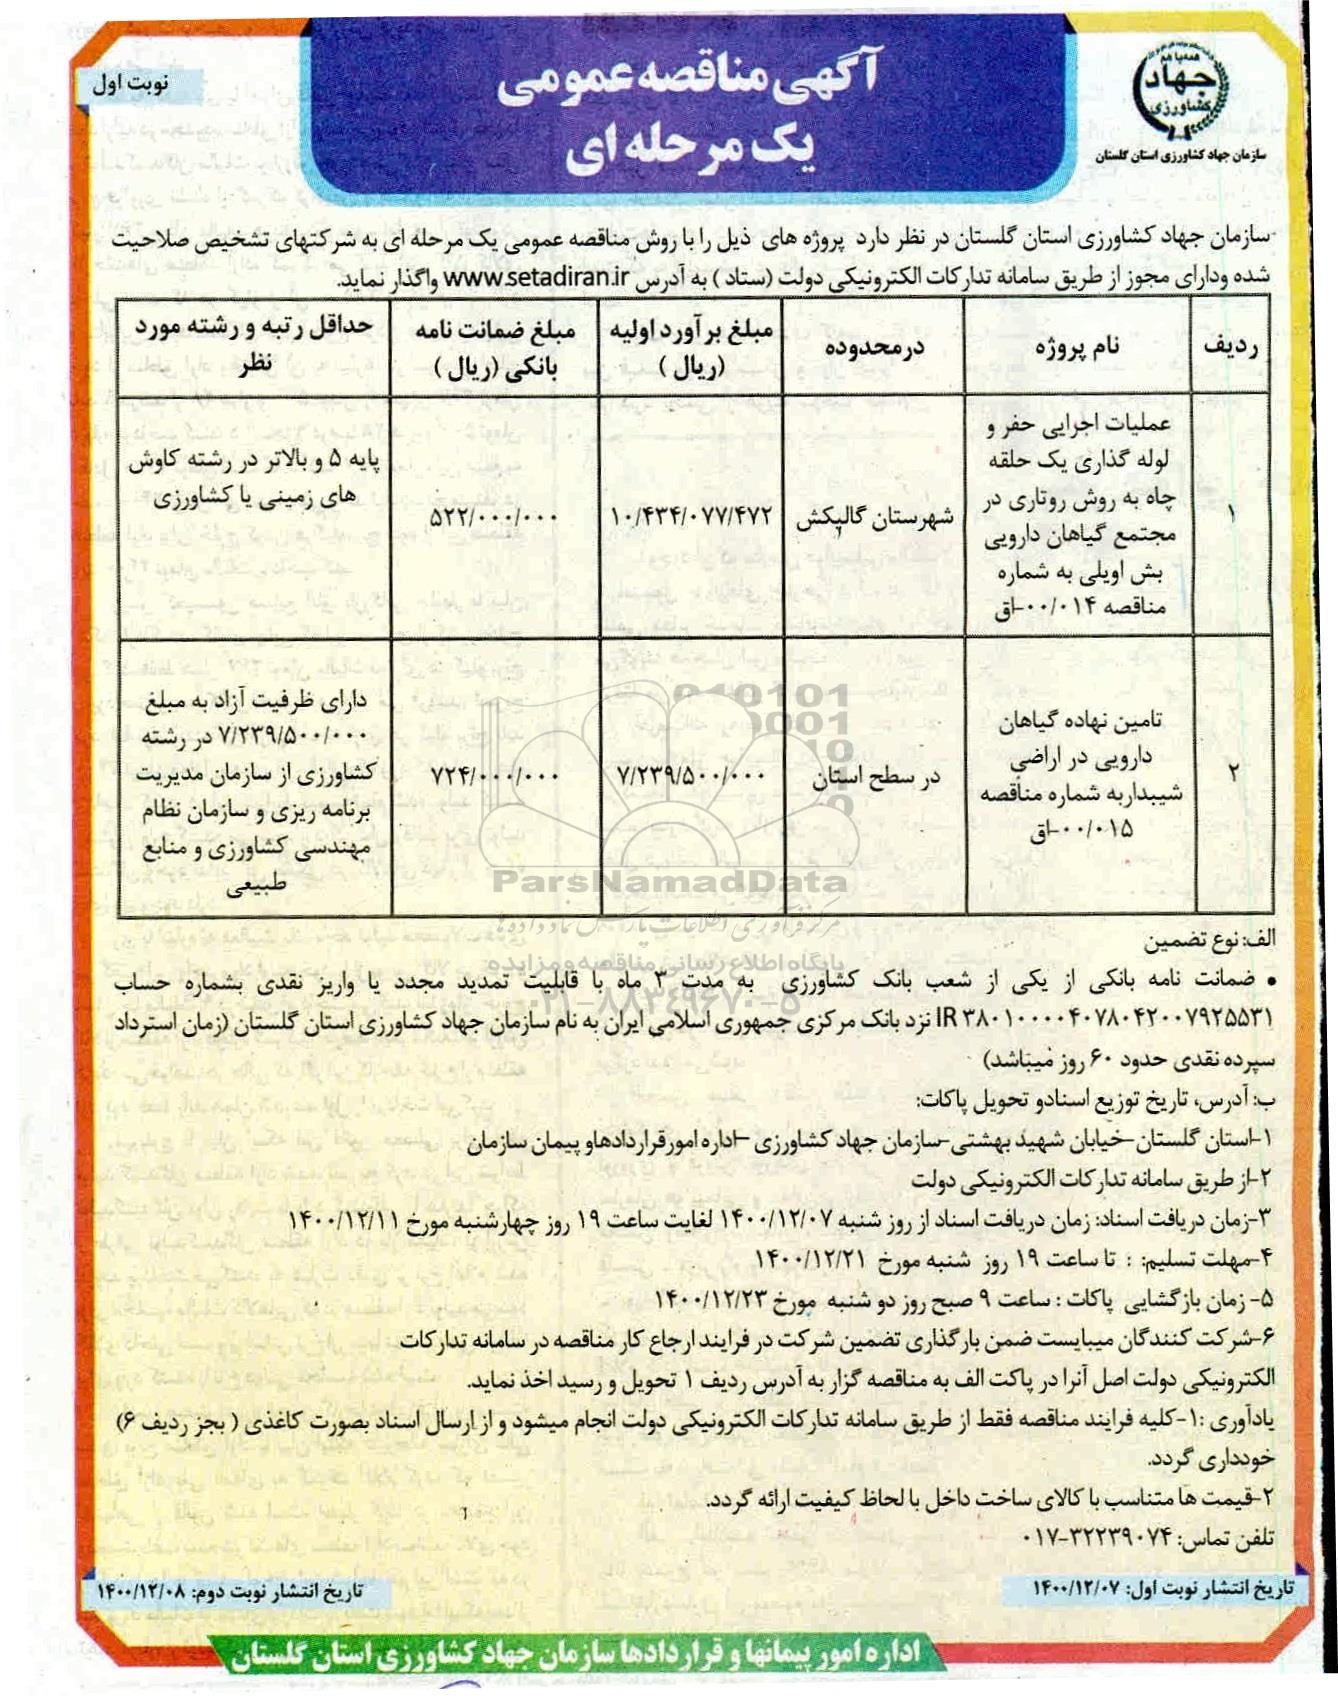 نوبت اول
آگهی مناقصه عمومی
یک مرحله ای
همه با هم
جهاد
کشاورزی
سازمان جهاد کشاورزی استان گلستان
سازمان جهاد کشاورزی استان گلستان در نظر دارد پروژه های ذیل را با روش مناقصه عمومی یک مرحله ای به شرکتهای تشخیص صلاحیت
شده ودارای مجوز از طریق سامانه تدارکات الکترونیکی دولت (ستاد ) به آدرس www.setadiran.ir واگذار نماید.
ردیف
نام پروژه
درمحدوده
مبلغ برآورد اولیه
(ریال )
مبلغ ضمانت نامه
بانکی (ریال )
حداقل رتبه و رشته مورد
نظر
۱
عملیات اجرایی حفر و
لوله گذاری یک حلقه
چاه به روش روتاری در
مجتمع گیاهان دارویی
بش اویلی به شماره
مناقصه ۰۰/۰۱۴-اق
شهرستان گالیکش
۱۰/۴۳۴/۰۷۷/۴۷۲
۵۲۲/۰۰۰/۰۰۰
پایه ۵ و بالاتر در رشته کاوش
های زمینی یا کشاورزی
۲
تامین نهاده گیاهان
دارویی در اراضی
شیبداربه شماره مناقصه
۰۰/۰۱۵-اق
در سطح استان
۷/۲۳۹/۵۰۰/۰۰۰
۷۲۴/۰۰۰/۰۰۰
دارای ظرفیت آزاد به مبلغ
۷/۲۳۹/۵۰۰/۰۰۰ در رشته
کشاورزی از سازمان مدیریت
برنامه ریزی و سازمان نظام
مهندسی کشاورزی و منابع
طبیعی
ParsNamadData
مرکز فرآوری اطلاعات پارس نماد داده ها
پایگاه اطلاع رسانی مناقصه و مزایده
۰۲۱-۸۸۳۴۹۶۷۰-۵
الف: نوع تضمین
• ضمانت نامه بانکی از یکی از شعب بانک کشاورزی به مدت ۳ ماه با قابلیت تمدید مجدد یا واریز نقدی بشماره حساب
IR ۳۸۰۱۰۰۰۰۴۰۷۸۰۴۲۰۰۷۹۲۵۵۳۱ نزد بانک مرکزی جمهوری اسلامی ایران به نام سازمان جهاد کشاورزی استان گلستان (زمان استرداد
سپرده نقدی حدود ۶۰ روز میباشد)
ب: آدرس، تاریخ توزیع اسنادو تحویل پاکات:
۱-استان گلستان-خیابان شهید بهشتی-سازمان جهاد کشاورزی -اداره امورقراردادهاو پیمان سازمان
۲-از طریق سامانه تدارکات الکترونیکی دولت
۳-زمان دریافت اسناد: زمان دریافت اسناد از روز شنبه ۱۴۰۰/۱۲/۰۷ لغایت ساعت ۱۹ روز چهارشنبه مورخ ۱۴۰۰/۱۲/۱۱
۴-مهلت تسلیم: : تا ساعت ۱۹ روز شنبه مورخ ۱۴۰۰/۱۲/۲۱
۵- زمان بازگشایی پاکات : ساعت ۹ صبح روز دو شنبه مورخ ۱۴۰۰/۱۲/۲۳
۶-شرکت کنندگان میبایست ضمن بارگذاری تضمین شرکت در فرایند ارجاع کار مناقصه در سامانه تدارکات
الکترونیکی دولت اصل آنرا در پاکت الف به مناقصه گزار به آدرس ردیف ۱ تحویل و رسید اخذ نماید.
یادآوری :۱-کلیه فرایند مناقصه فقط از طریق سامانه تدارکات الکترونیکی دولت انجام میشود و از ارسال اسناد بصورت کاغذی ( بجز ردیف ۶)
خودداری گردد.
۲-قیمت ها متناسب با کالای ساخت داخل با لحاظ کیفیت ارائه گردد.
تلفن تماس: ۳۲۲۳۹۰۷۴-۰۱۷
تاریخ انتشار نوبت اول: ۱۴۰۰/۱۲/۰۷
تاریخ انتشار نوبت دوم: ۱۴۰۰/۱۲/۰۸
اداره امور پیمانها و قراردادها سازمان جهاد کشاورزی استان گلستان